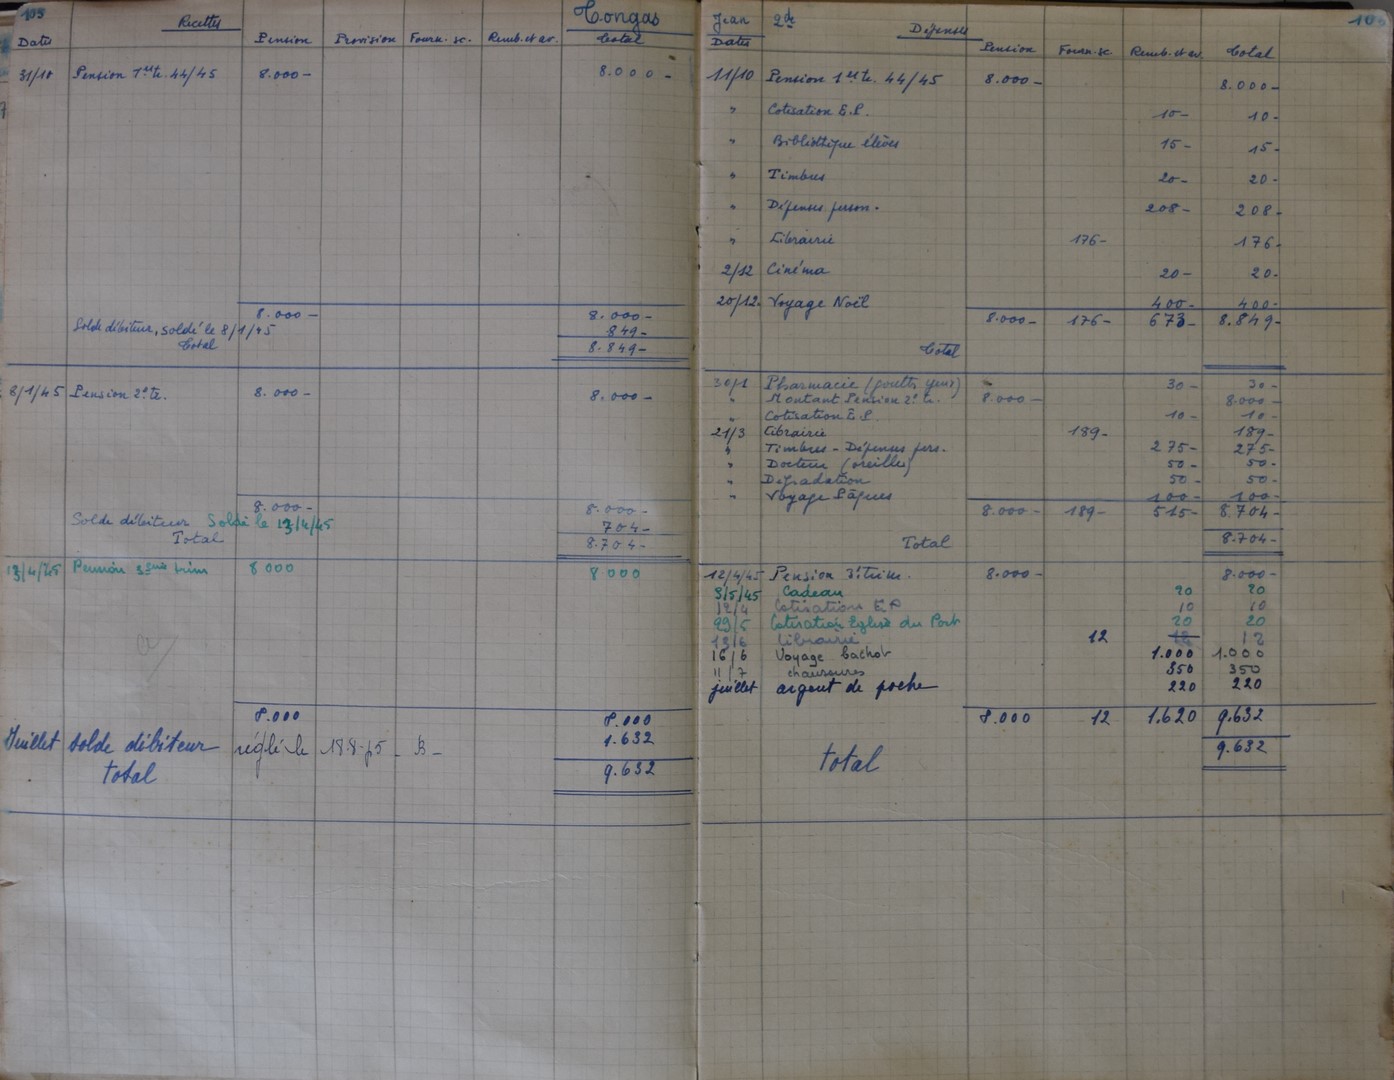 105
Recettes
Tongas
Dates
Pension
Provision
Fourn. sc.
Remb. et av.
Total
31/10 Pension 1er te. 44/45 8.000- 8.000-
8.000- 8.000-
Solde débiteur, soldé le 8/1/45 849-
Total 8.849-
8/1/45 Pension 2e te. 8.000- 8.000-
8.000- 8.000-
Solde débiteur Soldé le 13/4/45 704-
Total 8.704-
13/4/45 Pension 3eme trim 8000 8000
8.000 8.000
Juillet solde débiteur réglé le B- 1.632
total 9.632
Jean 2de
105
Dépenses
Dates
Pension
Fourn. sc.
Remb. et av.
Total
11/10 Pension 1er te. 44/45 8.000- 8.000-
" Cotisation E.P. 10- 10-
" Bibliothèque élèves 15- 15-
" Timbres 20- 20-
" Dépenses person. 208- 208-
" Librairie 176- 176-
2/12 Cinéma 20- 20-
20/12 Voyage Noël 400- 400-
8.000- 176- 673- 8.849-
Total
30/1 Pharmacie (goutts yeux) 30- 30-
" Montant Pension 2e te. 8.000- 8.000-
" Cotisation E.P. 10- 10-
21/3 Librairie 189- 189-
" Timbres - Dépenses pers. 275- 275-
" Docteur (oreilles) 50- 50-
" Dégradation 50- 50-
" Voyage Pâques 100- 100-
8.000- 189- 515- 8.704-
Total 8.704-
12/4/45 Pension 3e trim. 8.000- 8.000-
3/5/45 Cadeau 20 20
12/4 Cotisation EP 10 10
29/5 Cotisation Eglise du Port 20 20
13/6 Librairie 12 12 12
16/6 Voyage bachot 1.000 1.000
11/7 chaussures 350 350
juillet argent de poche 220 220
8.000 12 1.620 9.632
total 9.632